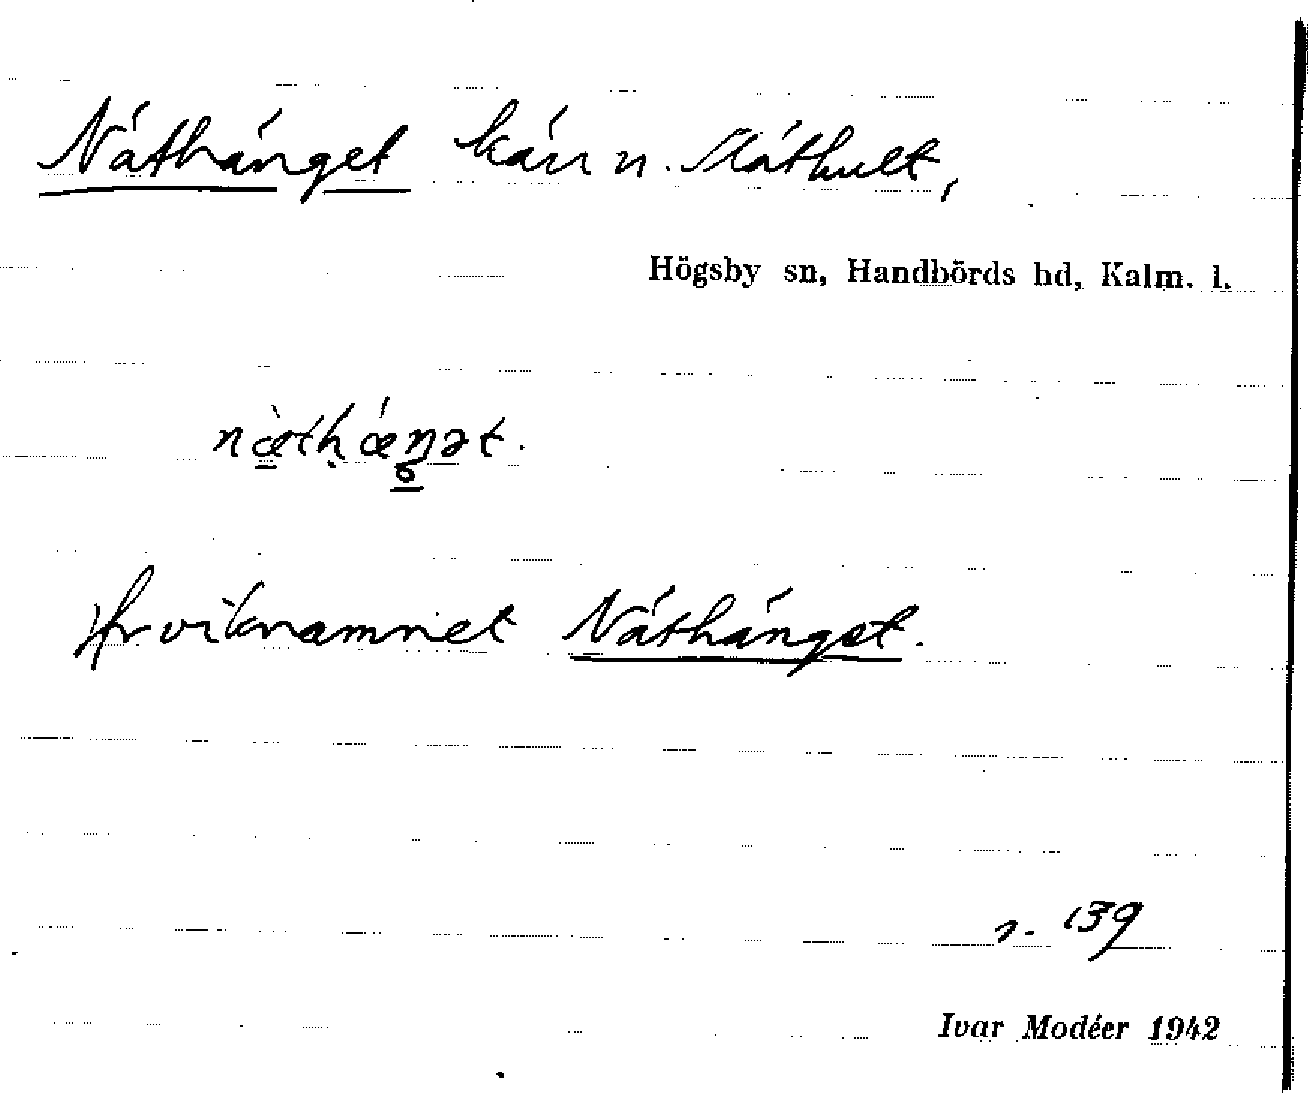 Näthänget kärr n. Släthult,
Högsby sn, Handbörds hd, Kalm. l.
Jfr viknamnet Näthänget.
s. 139
Ivar Modéer 1942